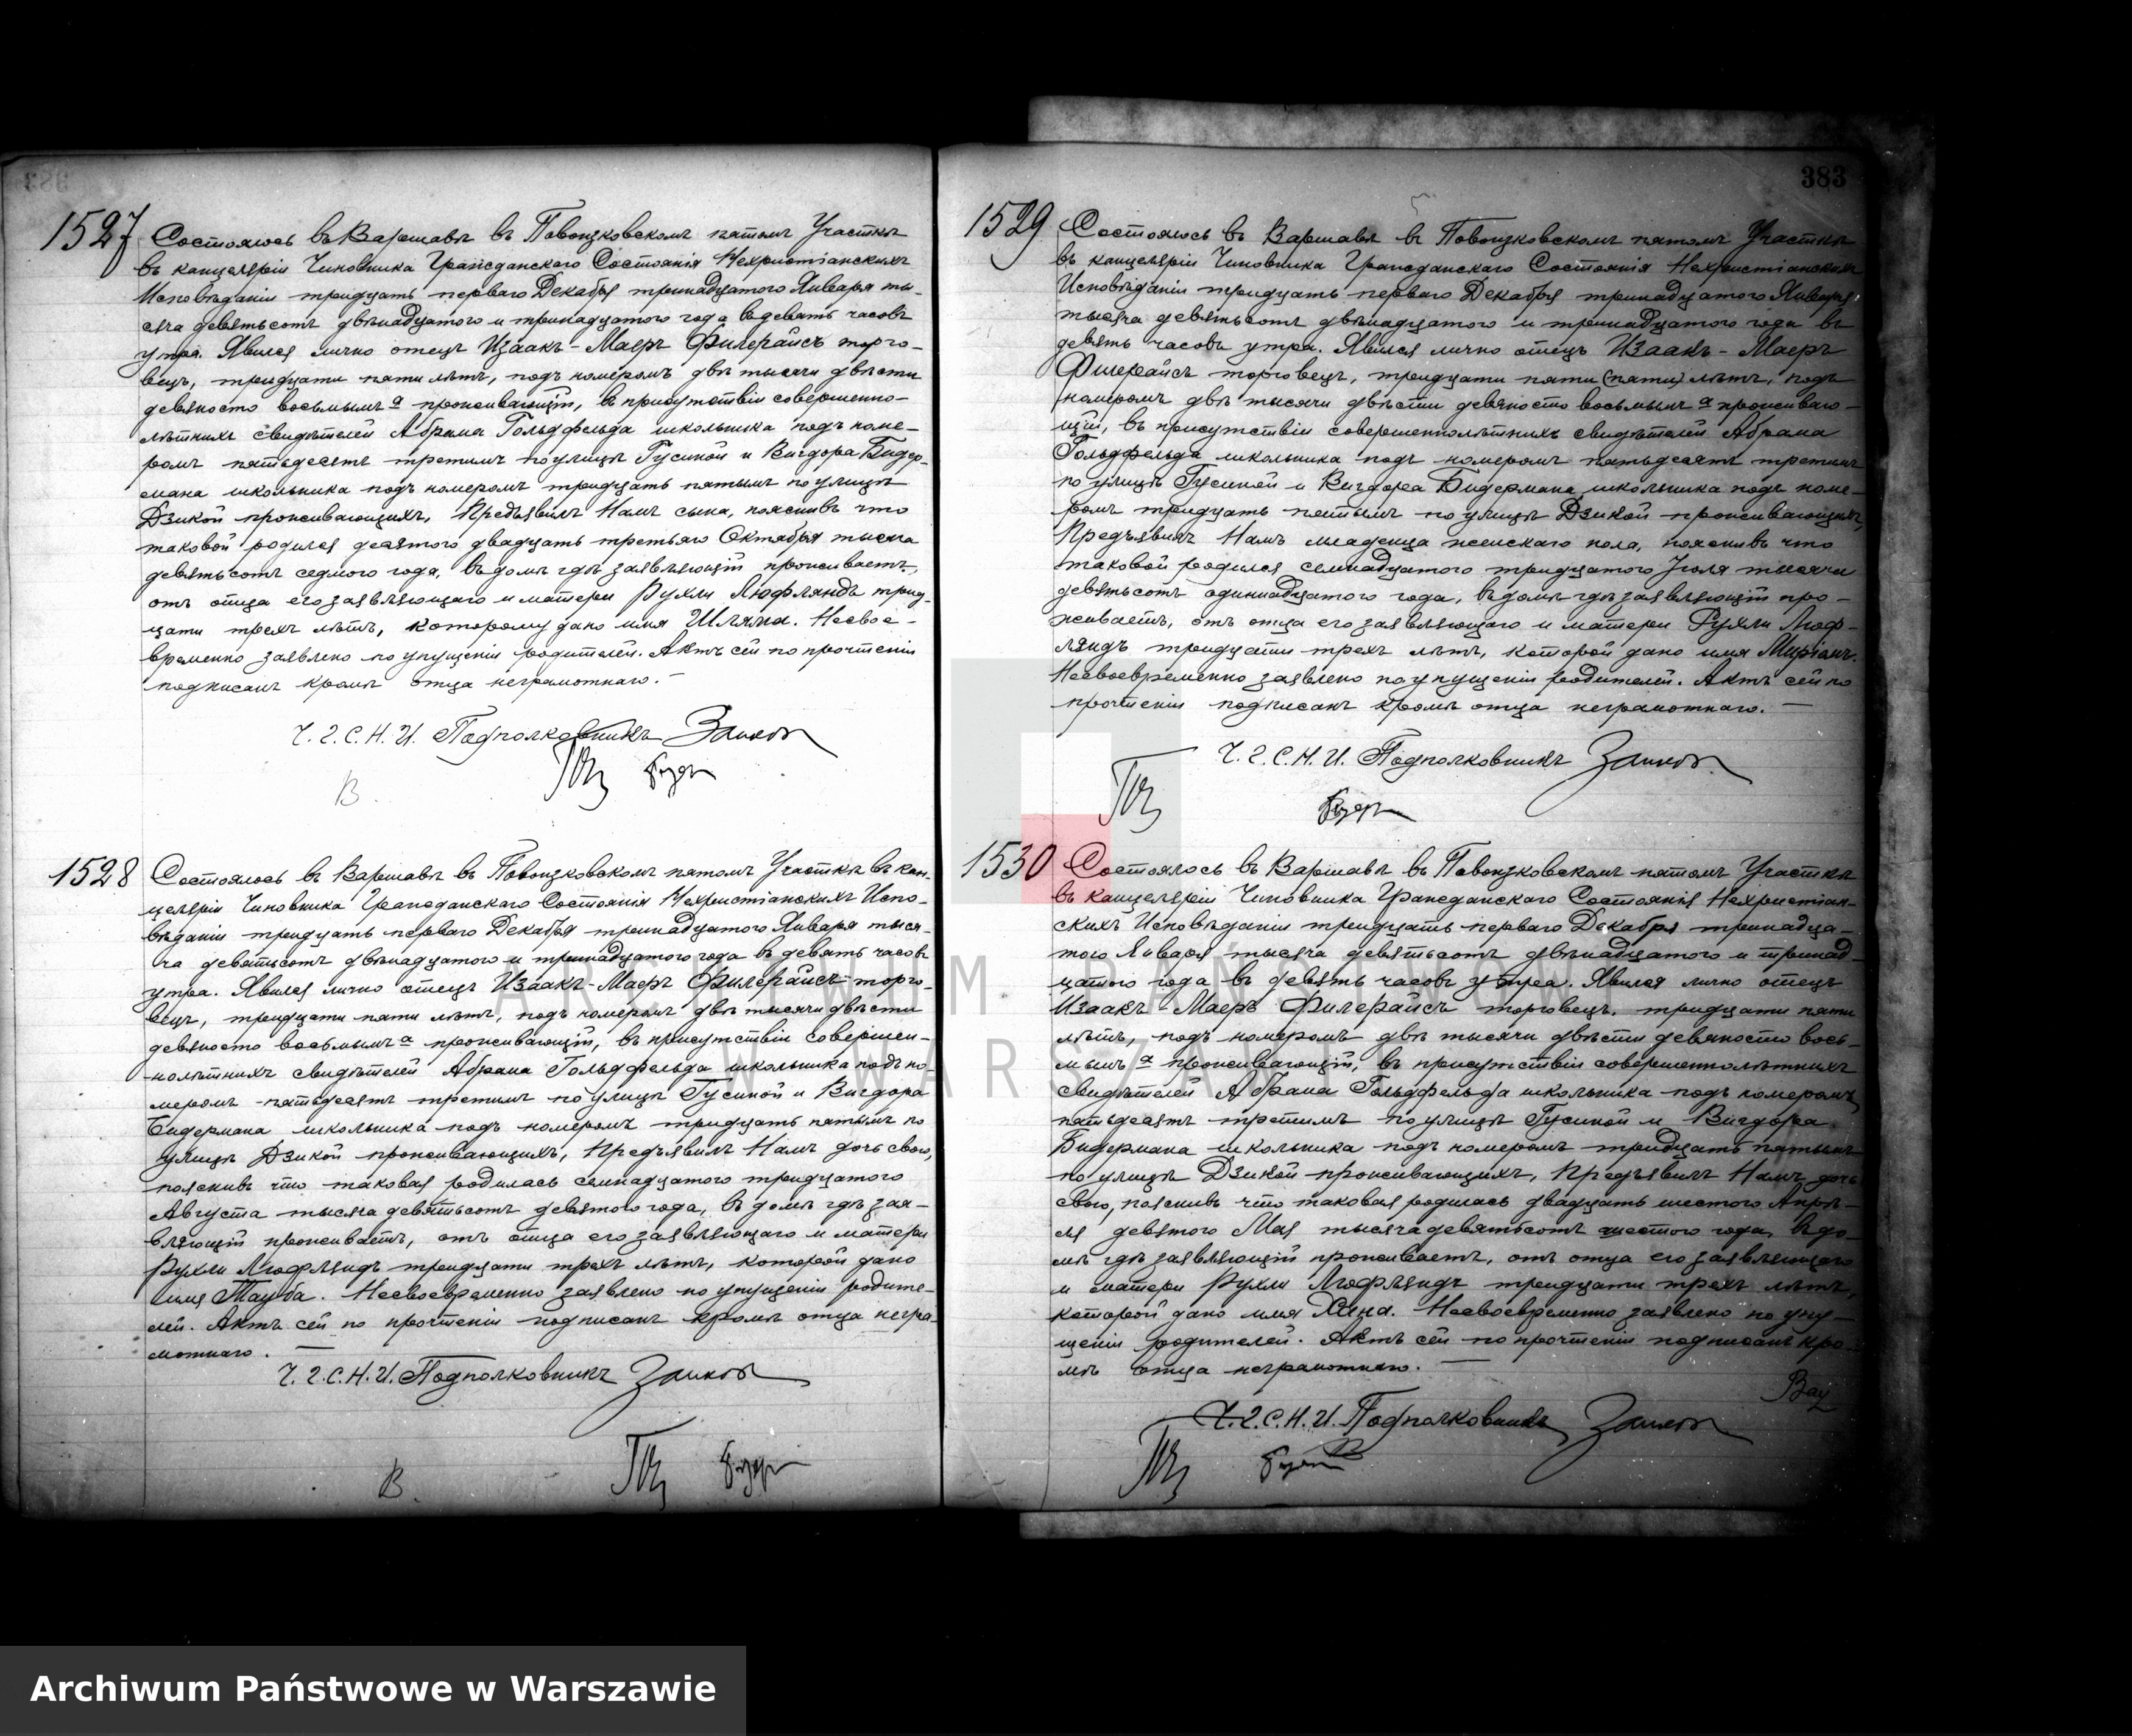 383
1527
Состоялось въ Варшавѣ въ Повонзковскомъ пятомъ Участкѣ
въ канцеляріи Чиновника Гражданскаго Состоянія Нехристіанскихъ
Исповѣданій тридцать перваго Декабря тринадцатого Января ты-
сяча девятьсотъ двѣнадцатого и тринадцатого года въ девять часовъ
утра. Явился лично отецъ Изаакъ-Маеръ Филерайсъ торго-
вецъ, тридцати пяти лѣтъ, подъ номеромъ двѣ тысячи двѣсти
девяносто восьмымъ а проживающій, въ присутствіи совершенно-
лѣтнихъ свидѣтелей Абрама Гольдфельда школьника подъ номе-
ромъ пятьдесятъ третимъ по улицѣ Гусиной и Вигдора Бидер-
мана школьника подъ номеромъ тридцать пятымъ по улицѣ
Дзикой проживающихъ, Предъявилъ Намъ сына, пояснивъ что
таковой родился десятого двадцать третьяго Октября тысяча
девятьсотъ седмого года, въ домѣ гдѣ заявляющій проживаетъ,
отъ отца его заявляющаго и матери Рухли Люфляндъ трид-
цати трехъ лѣтъ, которому дано имя Шляма. Несвое-
временно заявлено по упущенію родителей. Актъ сей по прочтеніи
подписанъ кромѣ отца неграмотнаго. —
Ч. Г. С. Н. И. Подполковникъ Заиков
В.
1528
Состоялось въ Варшавѣ въ Повонзковскомъ пятомъ Участкѣ въ кан-
целяріи Чиновника Гражданскаго Состоянія Нехристіанскихъ Испо-
вѣданій тридцать перваго Декабря тринадцатого Января тыся-
ча девятьсотъ двѣнадцатого и тринадцатого года въ девять часовъ
утра. Явился лично отецъ Изаакъ-Маеръ Филерайсъ торго-
вецъ, тридцати пяти лѣтъ, подъ номеромъ двѣ тысячи двѣсти
девяносто восьмымъ а проживающій, въ присутствіи совершен-
нолѣтнихъ свидѣтелей Абрама Гольдфельда школьника подъ но-
меромъ пятьдесятъ третимъ по улицѣ Гусиной и Вигдора
Бидермана школьника подъ номеромъ тридцать пятымъ по
улицѣ Дзикой проживающихъ, Предъявилъ Намъ дочь свою,
пояснивъ что таковая родилась семнадцатого тридцатого
Августа тысяча девятьсотъ девятого года, въ домѣ гдѣ зая-
вляющій проживаетъ, отъ отца его заявляющаго и матери
Рухли Люфляндъ тридцати трехъ лѣтъ, которой дано
имя Тауба. Несвоевременно заявлено по упущенію родите-
лей. Актъ сей по прочтеніи подписанъ кромѣ отца негра-
мотнаго. —
Ч. Г. С. Н. И. Подполковникъ Заиков
В.
383
1529
Состоялось въ Варшавѣ въ Повонзковскомъ пятомъ Участкѣ
въ канцеляріи Чиновника Гражданскаго Состоянія Нехристіанскихъ
Исповѣданій тридцать перваго Декабря тринадцатого Января
тысяча девятьсотъ двѣнадцатого и тринадцатого года въ
девять часовъ утра. Явился лично отецъ Изаакъ-Маеръ
Филерайсъ торговецъ, тридцати пяти (пяти) лѣтъ, подъ
номеромъ двѣ тысячи двѣсти девяносто восьмымъ а проживаю-
щій, въ присутствіи совершеннолѣтнихъ свидѣтелей Абрама
Гольдфельда школьника подъ номеромъ пятьдесятъ третимъ
по улицѣ Гусиной и Вигдора Бидермана школьника подъ номе-
ромъ тридцать пятымъ по улицѣ Дзикой проживающихъ,
Предъявилъ Намъ младенца женскаго пола, пояснивъ что
таковой родился семнадцатого тридцатого Іюля тысяча
девятьсотъ одиннадцатого года, въ домѣ гдѣ заявляющій про-
живаетъ, отъ отца его заявляющаго и матери Рухли Люф-
ляндъ тридцати трехъ лѣтъ, которой дано имя Миріамъ.
Несвоевременно заявлено по упущенію родителей. Актъ сей по
прочтеніи подписанъ кромѣ отца неграмотнаго. —
Ч. Г. С. Н. И. Подполковникъ Заиков
1530
Состоялось въ Варшавѣ въ Повонзковскомъ пятомъ Участкѣ
въ канцеляріи Чиновника Гражданскаго Состоянія Нехристіан-
скихъ Исповѣданій тридцать перваго Декабря тринадца-
того Января тысяча девятьсотъ двѣнадцатого и тринад-
цатого года въ девять часовъ утра. Явился лично отецъ
Изаакъ-Маеръ Филерайсъ торговецъ, тридцати пяти
лѣтъ, подъ номеромъ двѣ тысячи двѣсти девяносто вось-
мымъ а проживающій, въ присутствіи совершеннолѣтнихъ
свидѣтелей Абрама Гольдфельда школьника подъ номеромъ
пятьдесятъ третимъ по улицѣ Гусиной и Вигдора
Бидермана школьника подъ номеромъ тридцать пятымъ
по улицѣ Дзикой проживающихъ, Предъявилъ Намъ дочь
свою, пояснивъ что таковая родилась двадцать шестого Апрѣ-
ля девятого Мая тысяча девятьсотъ шестого года, въ до-
мѣ гдѣ заявляющій проживаетъ, отъ отца его заявляющаго
и матери Рухли Люфляндъ тридцати трехъ лѣтъ,
которой дано имя Хана. Несвоевременно заявлено по упу-
щенію родителей. Актъ сей по прочтеніи подписанъ кро-
мѣ отца неграмотнаго. —
Ч. Г. С. Н. И. Подполковникъ Заиков
ARCHIWUM PAŃSTWOWE
W WARSZAWIE
Archiwum Państwowe w Warszawie